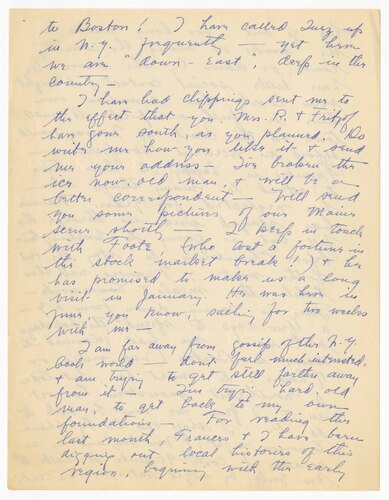 to Boston! I have called Suzy up
in N.Y. frequently — yet here
we are "down-East", deep in the
country —
I have had clippings sent me to
the effect that you, Mrs. R. & Fritzof
have gone South, as you planned. Do
write me how you like it & send
me your address — I've broken the
ice now, old man, & will be a
better correspondent — Will send
you some pictures of our Maine
scenes shortly — I keep in touch
with Foote (who lost a fortune in
this stock market break!) & he
has promised to make us a long
visit in January. He was here in
June, you know, sailing for two weeks
with me —
I am far away from gossip of the N.Y.
book world — don't feel much interested
& am trying to get still farther away
from it — I'm trying, hard, old
man, to get back to my own
foundations — For reading this
last month, Frances & I have been
digging out local histories of this
region, beginning with the early